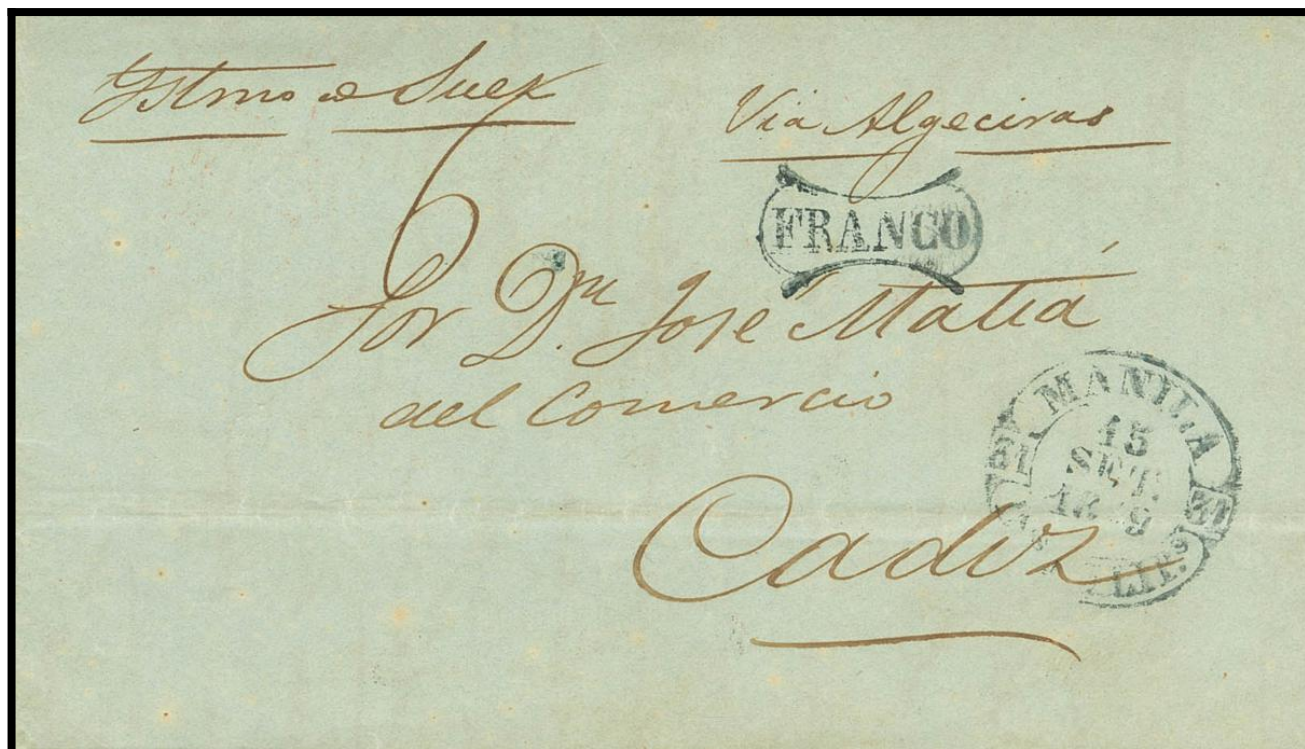 Ystmo de Suez
Via Algeciras
6
FRANCO
Sor Dn Jose Matiá
del Comercio
MANILA
15
SET.
Cadiz